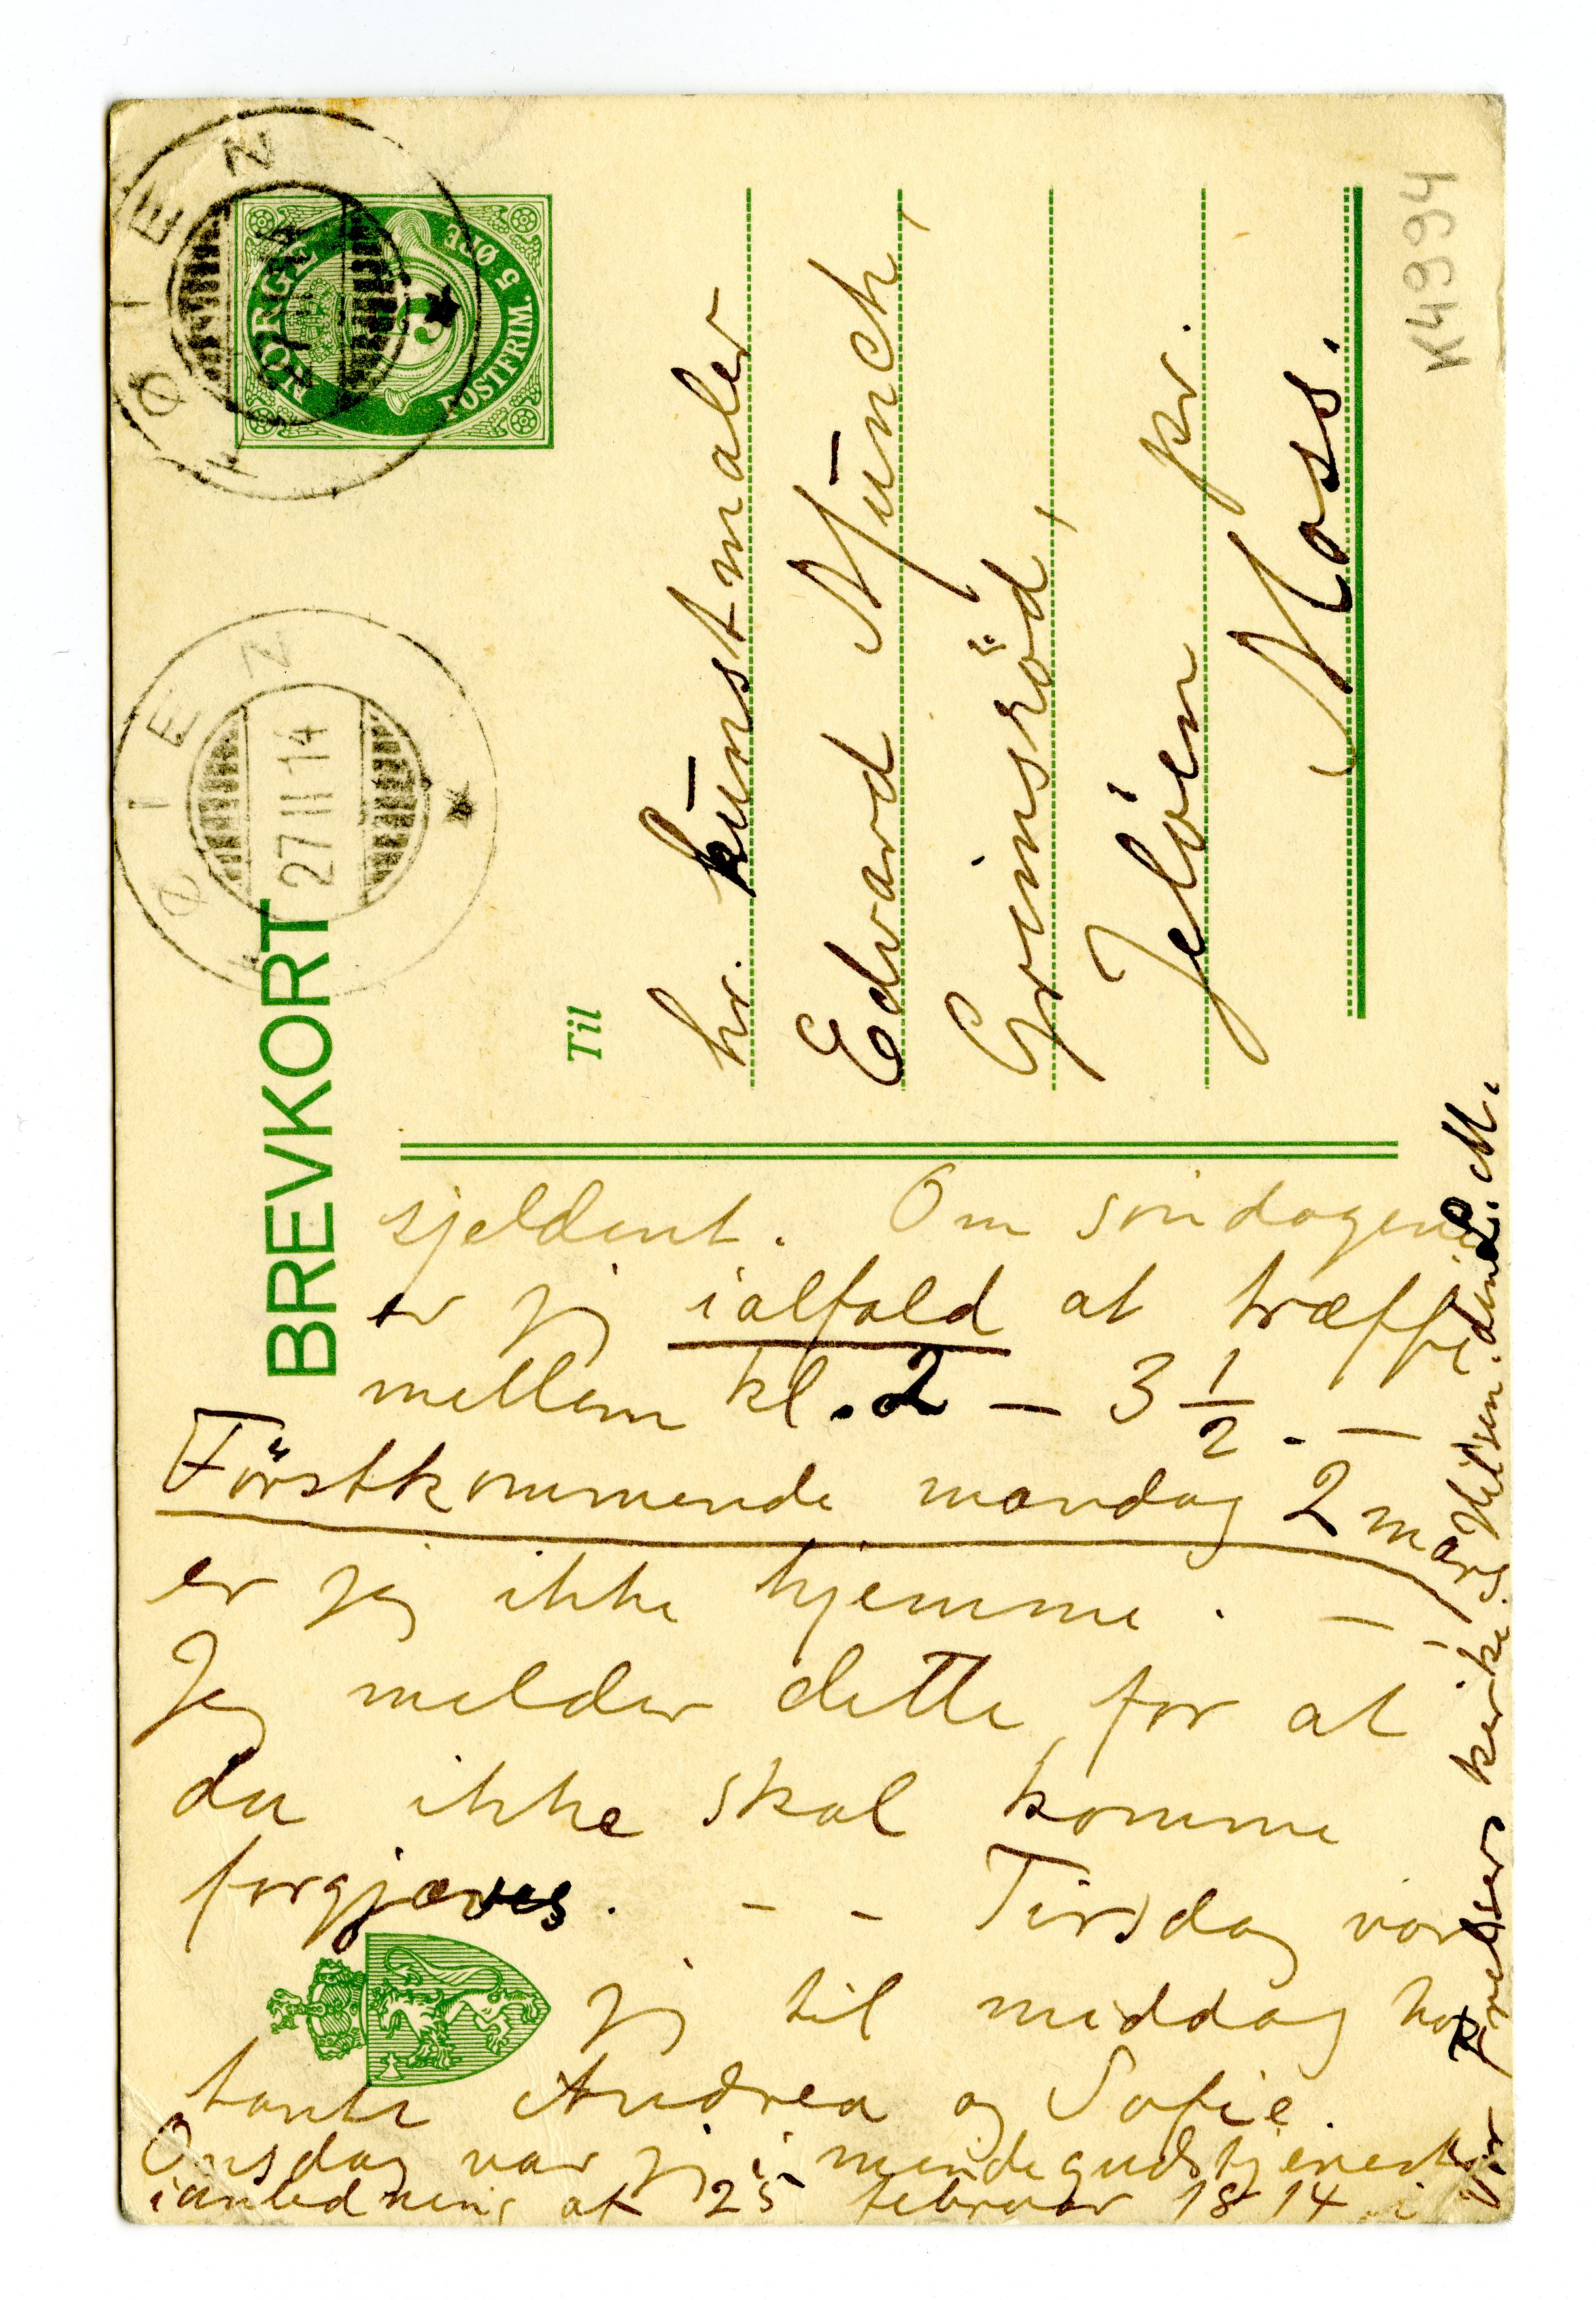 BREVKORT
NORGE
5
POSTFRIM. 5 ØRE
TØIEN
TØIEN
27 II 14
Til
hr. kūnstmaler
Edvard Mūnch,
Grimsröd,
Jelöen pr.
Moss.
K4994
sjeldent. Om söndagene
er jeg ialfald at træffe
mellem kl. 2 – 3 1/2. –
Förstkommende mandag 2 mars
er jeg ikke hjemme. –
Jeg melder dette for at
du ikke skal komme
forgjæves. – – Tirsdag var
jeg til middag hos
tante Andrea og Sofie.
Onsdag var jeg i mindegudstjeneste
i anledning af 25 februar 1814 i
Vor Frelsers kirke. – Hilsen. din L. M.